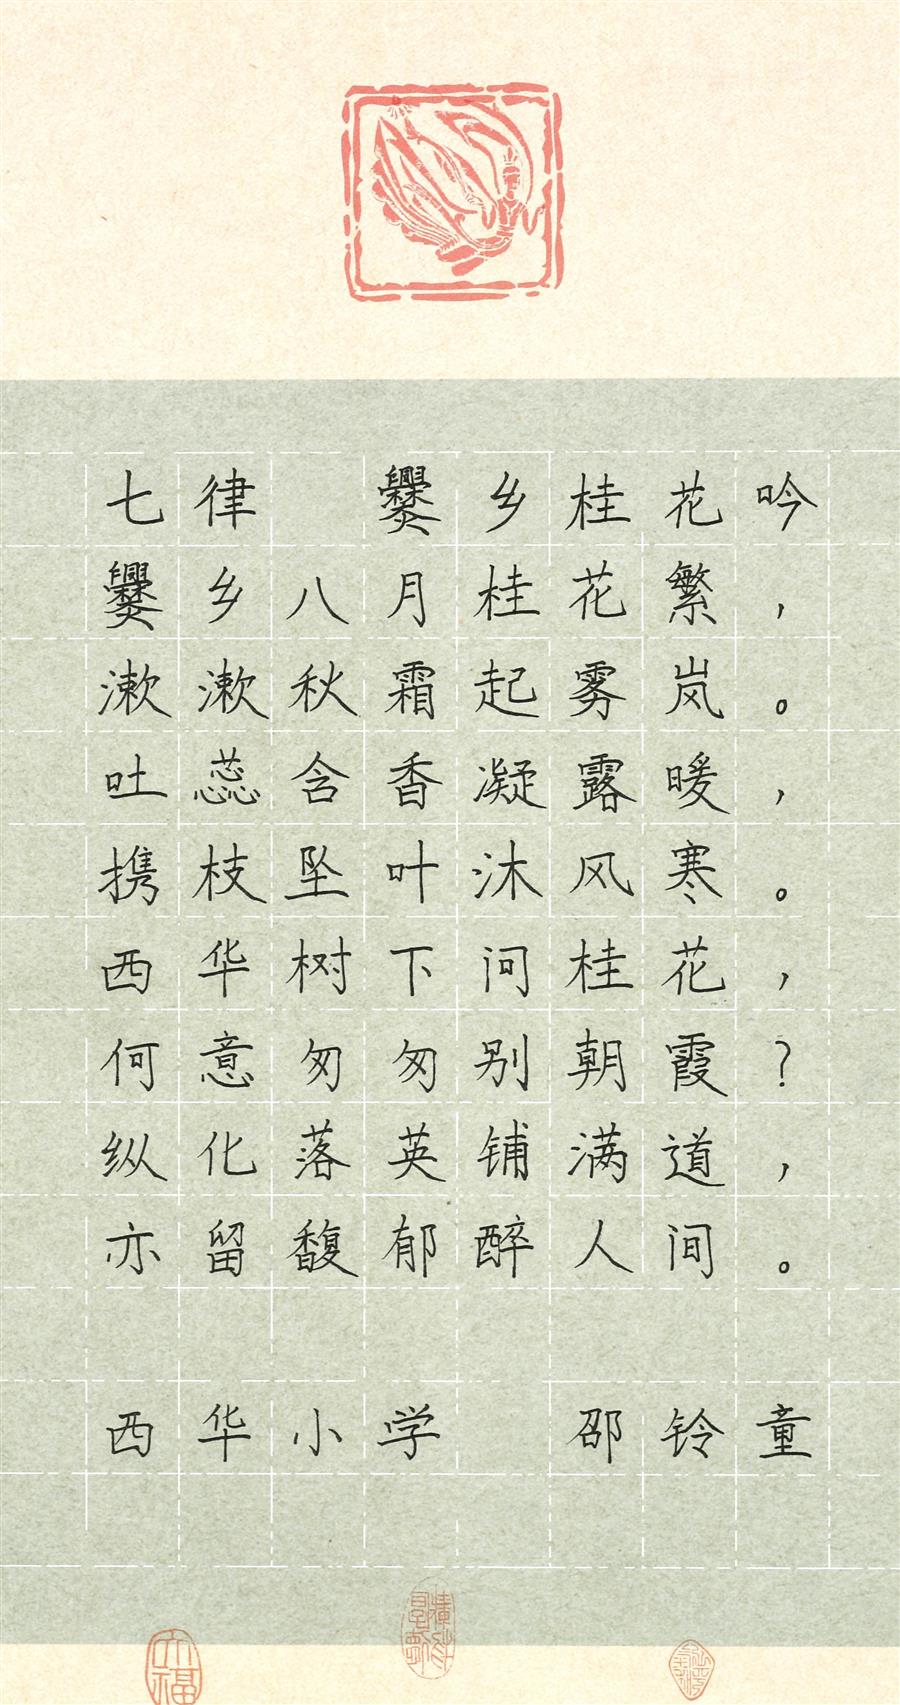 七律 爨乡桂花吟
爨乡八月桂花繁，
漱漱秋霜起雾岚。
吐蕊含香凝露暖，
携枝坠叶沐风寒。
西华树下问桂花，
何意匆匆别朝霞？
纵化落英铺满道，
亦留馥郁醉人间。
西华小学 邵铃童